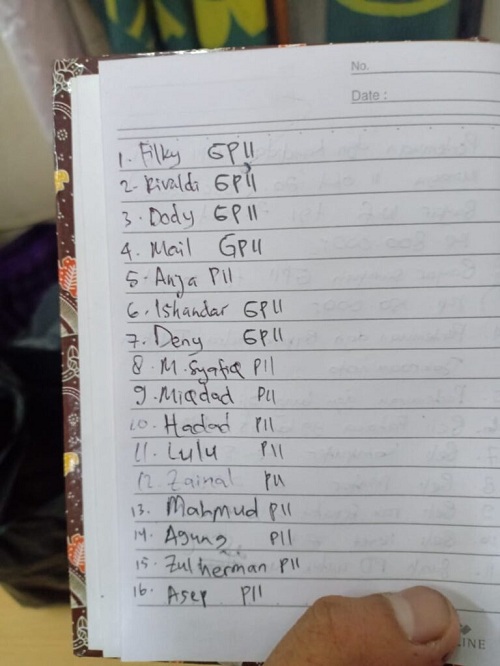 No.
Date :
1. Filky GPII
2. Rivaldi GPII
3. Dody GPII
4. Mail GPII
5. Anja PII
6. Iskandar GPII
7. Deny GPII
8. M. Syafiq PII
9. Miqdad PII
10. Hadad PII
11. Lulu PII
12. Zainal PII
13. Mahmud PII
14. Agung PII
15. Zulherman PII
16. Asep PII
INE